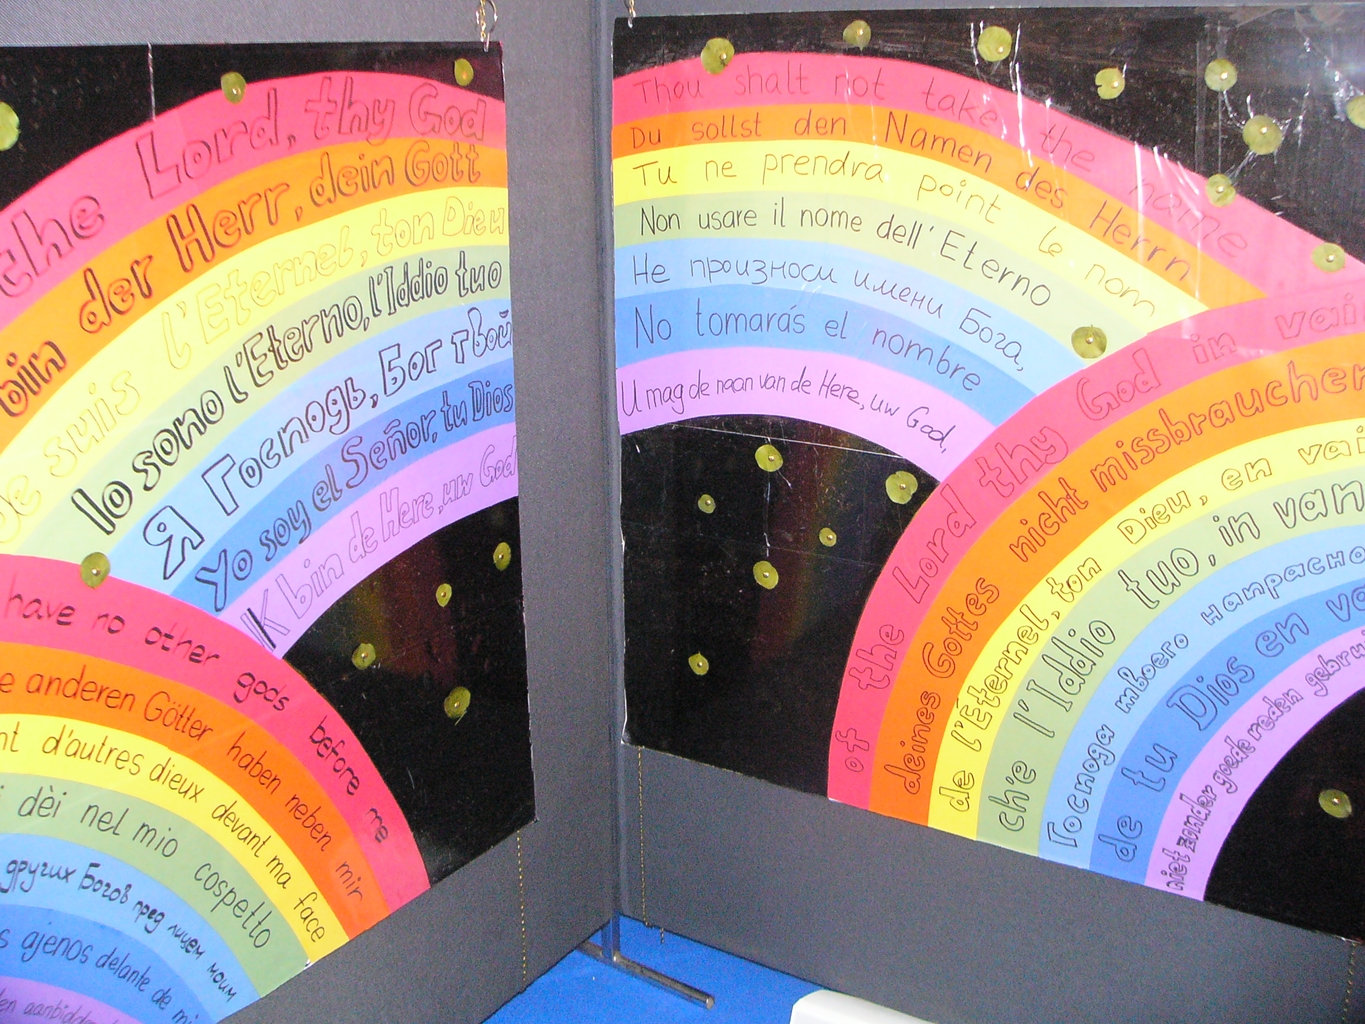 the Lord, thy God
bin der Herr, dein Gott
suis l'Eternel, ton Dieu
Io sono l'Eterno, l'Iddio tuo
Я Господь, Бог твой
Yo soy el Señor, tu Dios
IK bin de Here, uw God
have no other gods before me
anderen Götter haben neben mir
d'autres dieux devant ma face
dèi nel mio cospetto
других Богов пред лицем моим
ajenos delante de mi
Thou shalt not take the name
Du sollst den Namen des Herrn
Tu ne prendra point le nom
Non usare il nome dell' Eterno
Не произноси имени Бога,
No tomarás el nombre
U mag de naan van de Here, uw God,
of the Lord thy God in vai
deines Gottes nicht missbrauchen
de l'Éternel, ton Dieu, en vai
che l'Iddio tuo, in van
Господа твоего напрасно
de tu Dios en va
niet zonder goede reden gebrui